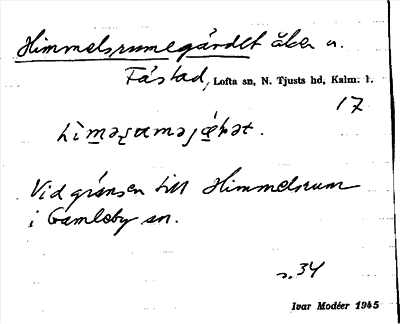 Himmelsrumegärdet åker u.
Fästad, Lofta sn, N. Tjusts hd, Kalm. l.
17
Vid gränsen till Himmelsrum
i Gamleby sn.
s. 34
Ivar Modéer 1945